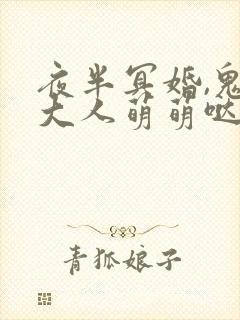 夜半冥婚,鬼
大人萌萌哒
青狐娘子